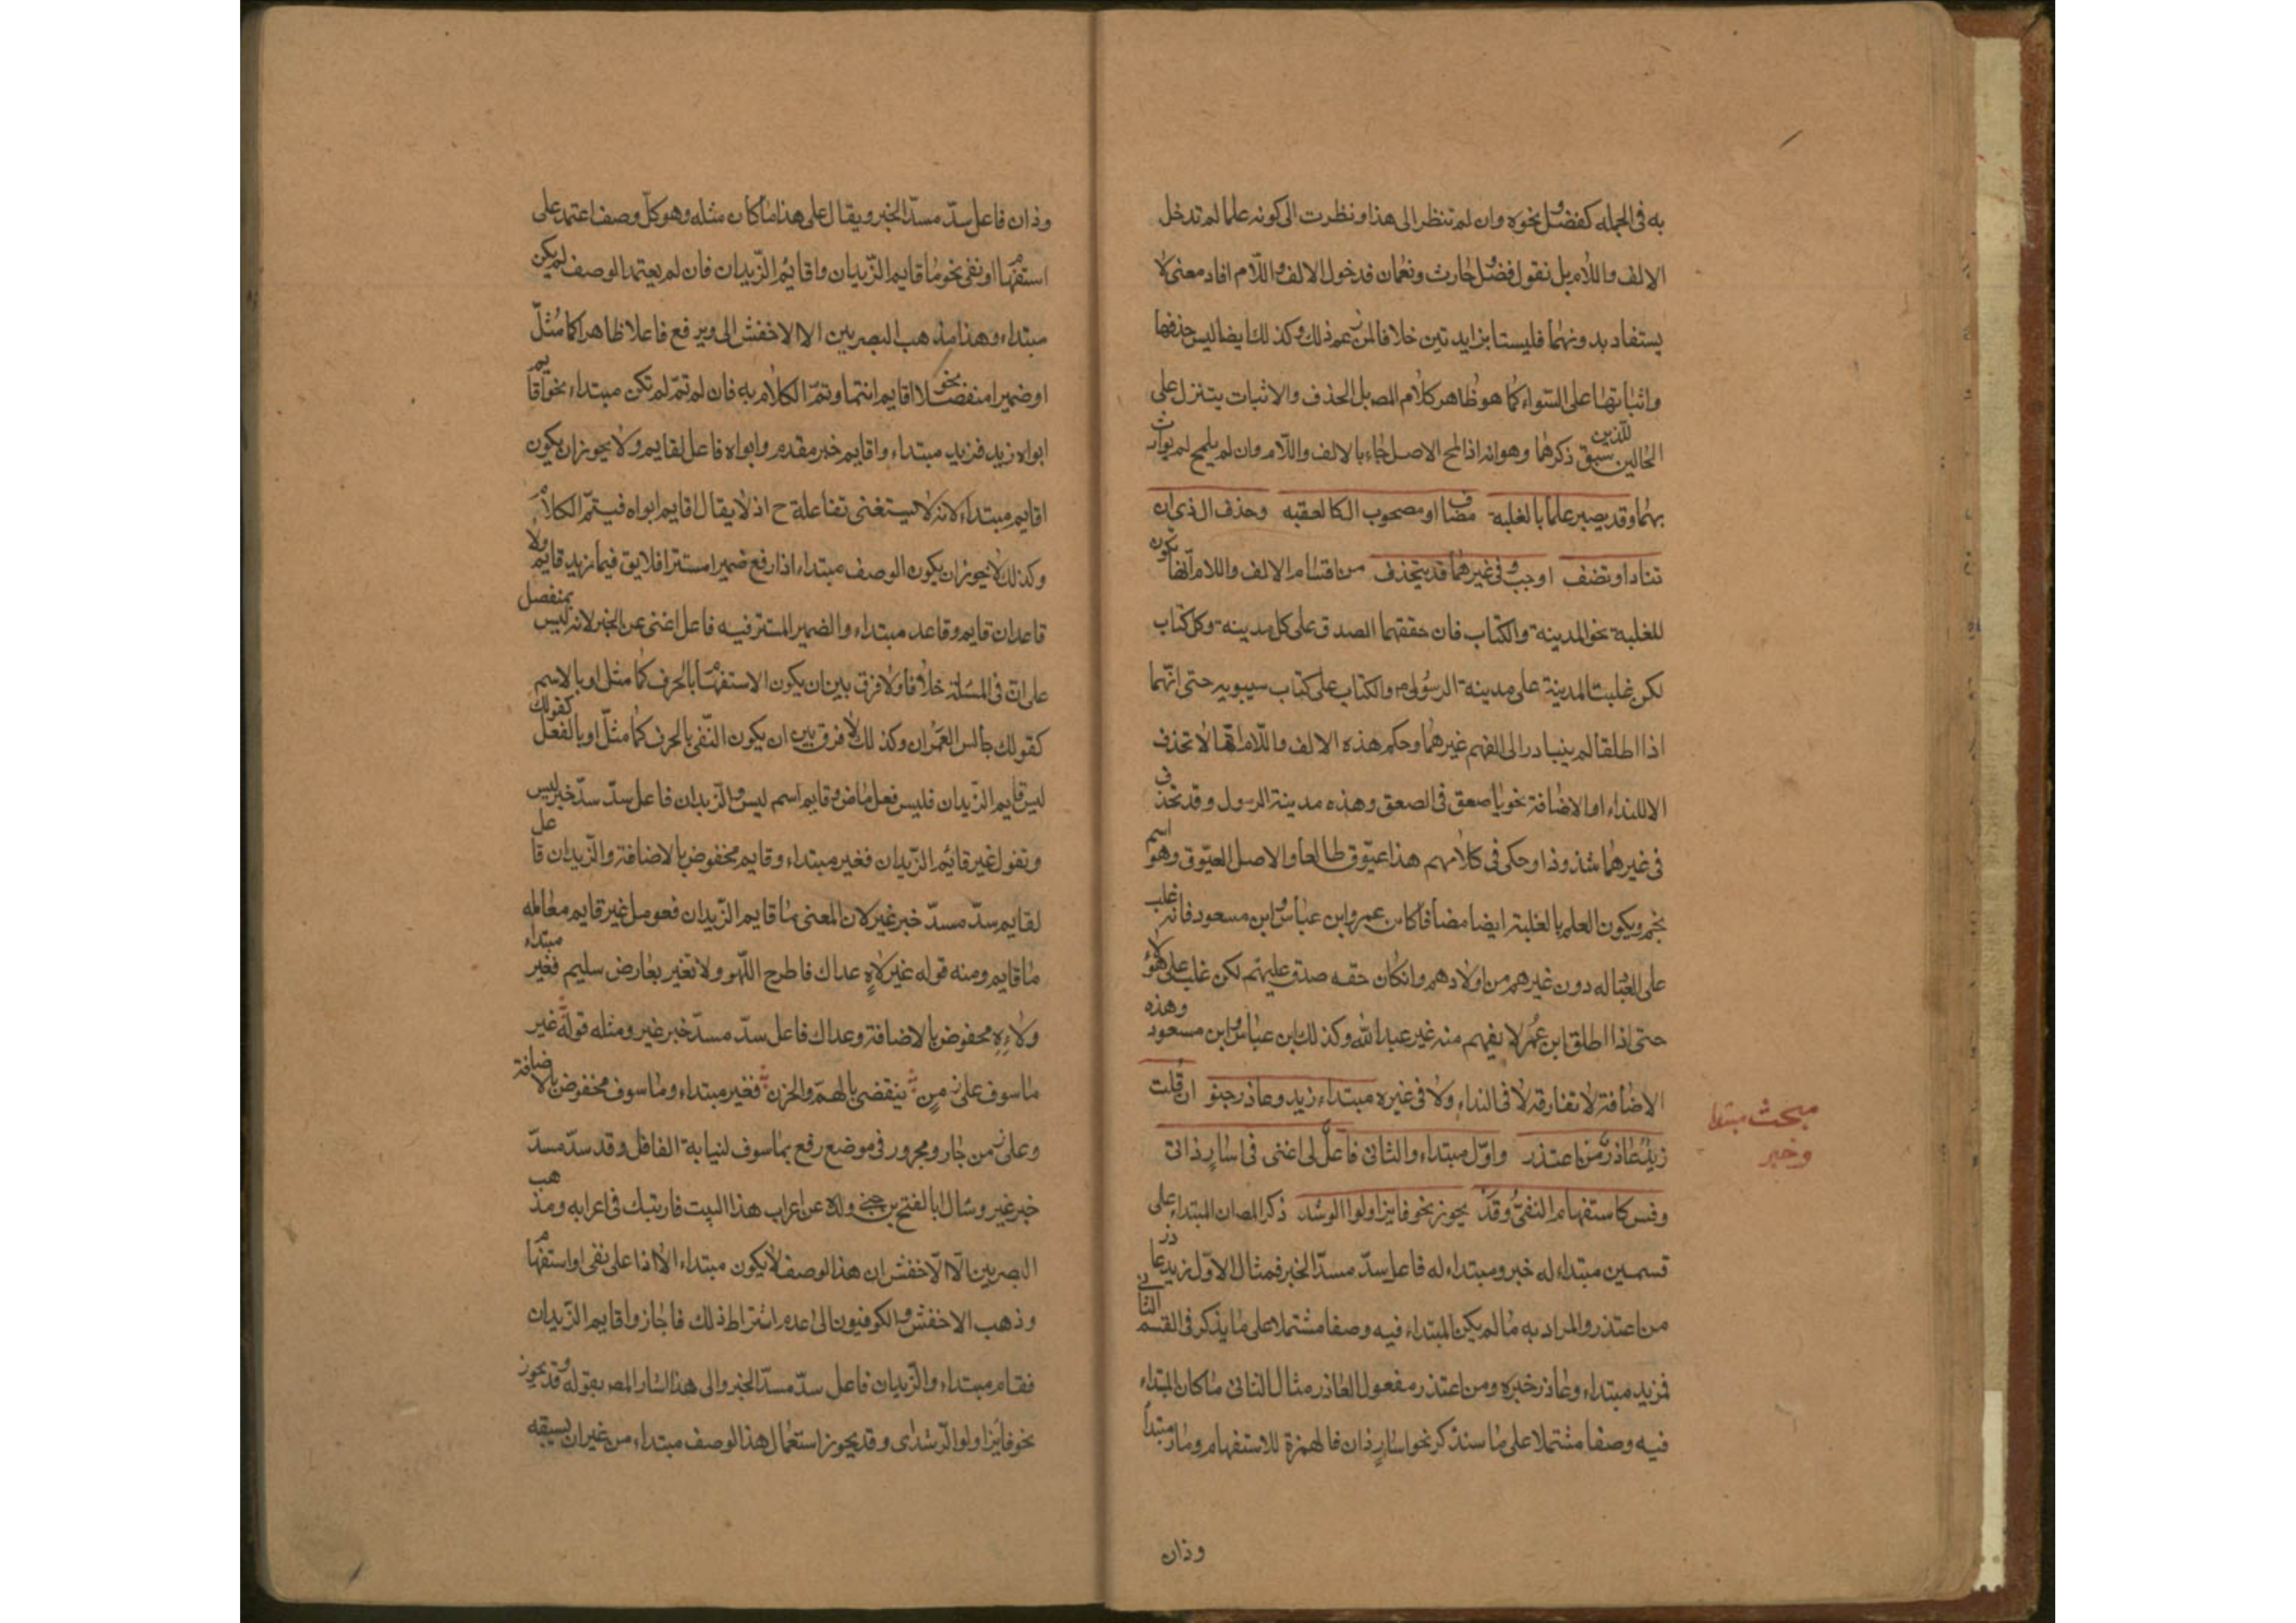 به فى الجمله كفضل ونحوه وان لم تنظر الى هذا ونظرت الى كونه علما لم تدخل
الالف واللام بل نقول فضل وحارث ونعمان فدخول الالف واللام افاد معنى لا
يستفاد بدونهما فليستا بزايدتين خلافا لمن زعم ذلك وكذلك ايضا ليس حذفهما
واثباتهما على السواء كما هو ظاهر كلام المص بل الحذف والاثبات يتنزل على
الحالين اللذين سبق ذكرهما وهو انه اذا لمح الاصل جاء بالالف واللام وان لم يلمح لم يوت
بهما وقد يصير علما بالغلبة مضاف او مصحوب ال كالعقبه وحذف ال ذى ان
تناد او تضف اوجب وفى غيرهما قد ينحذف من اقسام الالف واللام انها تكون
للغلبة نحو المدينة والكتاب فان حققهما الصدق على كل مدينة وكل كتاب
لكن غلبت المدينة على مدينة الرسول ص والكتاب على كتاب سيبويه حتى انهما
اذا اطلقا لم يتبادر الى الفهم غيرهما وحكم هذه الالف واللام انها لا تحذف
الا للنداء او الاضافة نحو يا صعق فى الصعق وهذه مدينة الرسول وقد تحذف
فى غيرهما شذوذا وحكى فى كلامهم هذا عيوق طالعا والاصل العيوق وهو اسم
نجم ويكون العلم بالغلبة ايضا مضافا كابن عمر وابن عباس وابن مسعود فانه غلب
على العبادله دون غيرهم من اولادهم وان كان حقه صدق عليهم لكن غلب على هؤلاء
حتى اذا اطلق ابن عمر لا يفهم منه غير عبد الله وكذلك ابن عباس وابن مسعود وهذه
الاضافة لا تفارقه لا فى النداء ولا فى غيره مبتداء زيد وعاذر خبر ان قلت
زيد عاذر من اعتذر واول مبتداء والثانى فاعل اغنى فى اسار ذان
وقس كاستفهام النفى وقد يجوز نحو فايز اولوا الرشد ذكر المص ان المبتداء على
قسمين مبتداء له خبر ومبتداء له فاعل سد مسد الخبر فمثال الاول زيد عاذر
من اعتذر والمراد به ما لم يكن المبتداء فيه وصفا مشتملا على ما يذكر فى القسم الثانى
فزيد مبتداء وعاذر خبره ومن اعتذر مفعول لعاذر مثال الثانى ما كان المبتداء
فيه وصفا مشتملا على ما سنذكر نحو اسار ذان فالهمزة للاستفهام وسار مبتدأ
وذان
مبحث مبتدا
وخبر
وذان فاعل سد مسد الخبر ويقال على هذا ما كان مثله وهو كل وصف اعتمد على
استفهام او نفى نحو ما قايم الزيدان واقايم الزيدان فان لم يعتمد الوصف لم يكن
مبتداء وهذا مذهب البصريين الا الاخفش الى ويرفع فاعلا ظاهرا كما مثل
او ضميرا منفصلا نحو اقايم انتما وتم الكلام به فان لم تتم لم تكن مبتداء نحو اقايم
ابواه زيد فزيد مبتداء واقايم خبر مقدم وابواه فاعل لقايم ولا يجوز ان يكون
اقايم مبتداء لانه لا يستغنى بفاعله ح اذ لا يقال اقايم ابواه فيتم الكلام
وكذلك لا يجوز ان يكون الوصف مبتداء اذا رفع ضميرا مستترا فلا يق فى ما زيد قايم ولا
قاعد ان قايم وقاعد مبتداء والضمير المستتر فيه فاعل اغنى عن الخبر لانه ليس بمنفصل
على ان فى المسئلة خلافا ولا فرق بين ان يكون الاستفهام بالحرف كما مثل او بالاسم
كقولك جالس العمران وكذلك لا فرق بين ان يكون النفى بالحرف كما مثل او بالفعل كقولك
ليس قايم الزيدان فليس فعل ماض وقايم اسم ليس والزيدان فاعل سد سد خبر ليس
وتقول غير قائم الزيدان فغير مبتداء وقايم مخفوض بالاضافة والزيدان فاعل
لقايم سد مسد خبر غير لان المعنى ما قايم الزيدان فعومل غير قايم معامله
ما قايم ومنه قوله غير لاه عداك فاطرح اللهو ولا تغير بعارض سليم فغير مبتداء
ولاه مخفوض بالاضافة وعداك فاعل سد مسد خبر غير ومثله قوله غير
ماسوف على زمن ينقضى بالهم والحزن فغير مبتداء وماسوف مخفوض بالاضافة
وعلى زمن جار ومجرور فى موضع رفع بماسوف لنيابة الفاعل وقد سد مسد
خبر غير وسال ابا الفتح بن جنى ولده عن اعراب هذا البيت فارتبك فى اعرابه ومذهب
البصريين الا الاخفش ان هذا الوصف لا يكون مبتداء الا اذا على نفى او استفهام
وذهب الاخفش والكوفيون الى عدم اشتراط ذلك فاجازوا قايم الزيدان
فقام مبتداء والزيدان فاعل سد مسد الخبر والى هذا اشار المص بقوله وقد يجوز
نحو فايز اولوا الرشد اى وقد يجوز استعمال هذا الوصف مبتداء من غير ان يسبقه